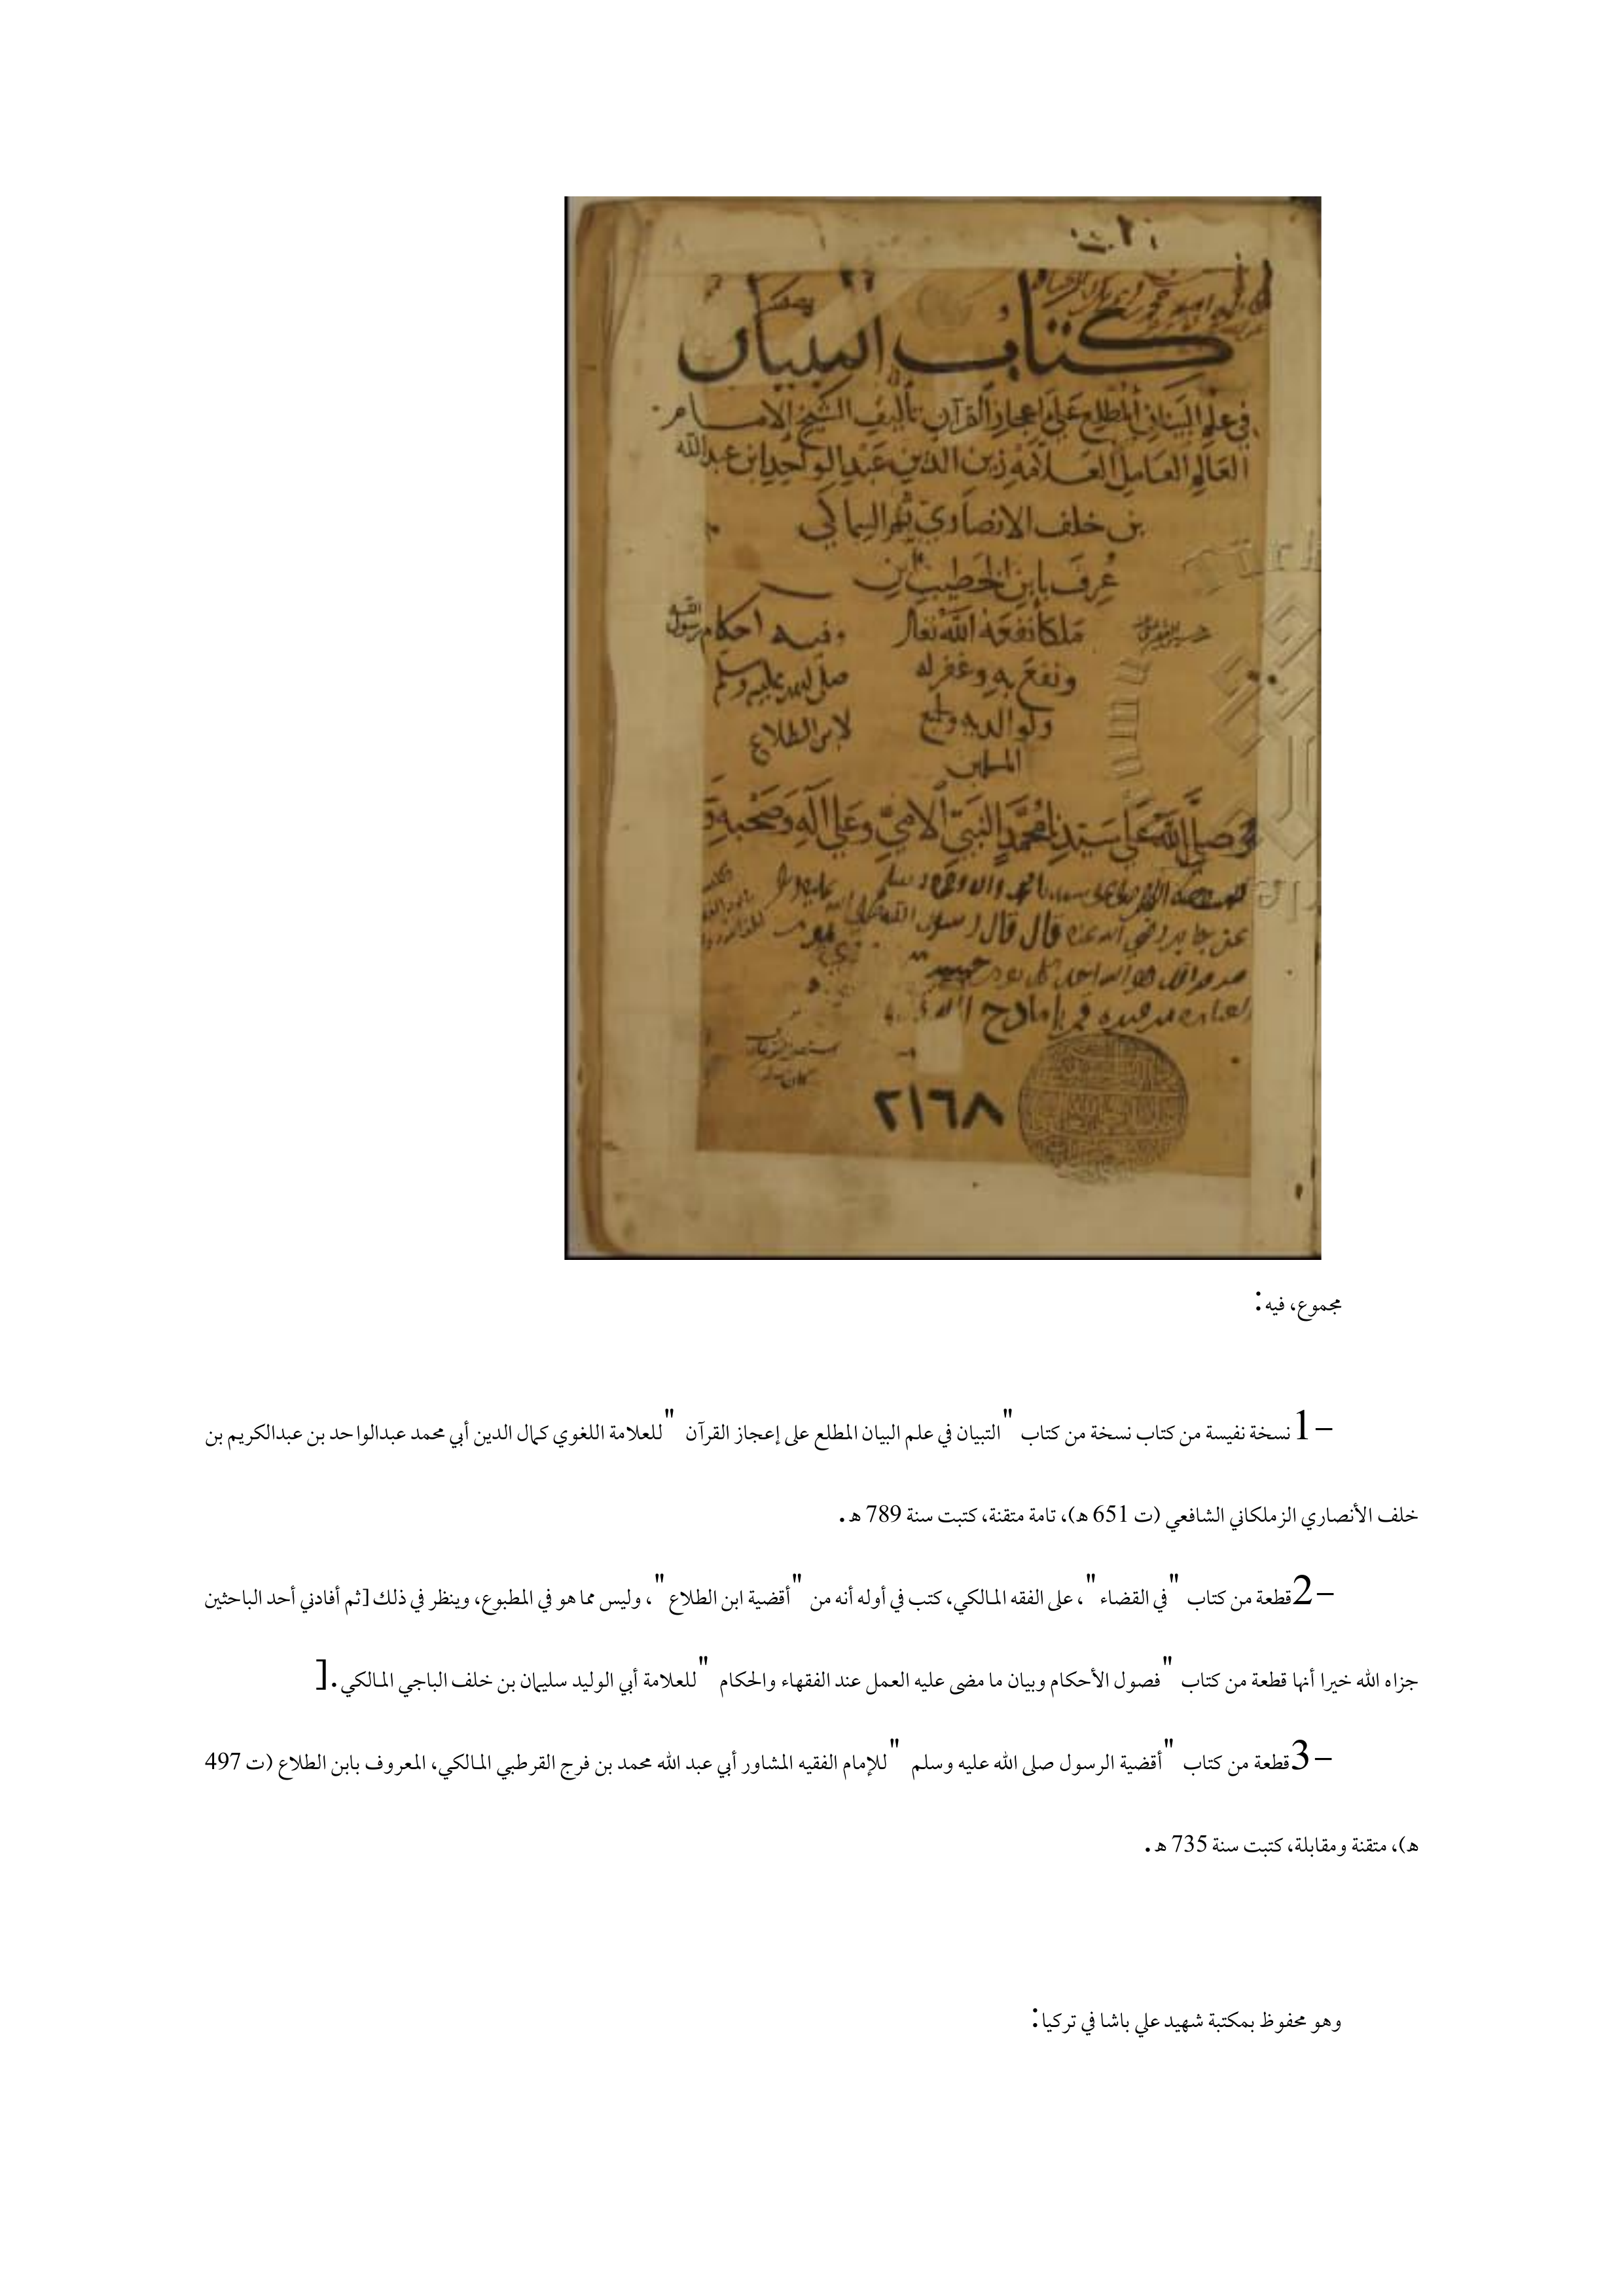 كتاب التبيان
في علم البيان المطلع على إعجاز القرآن تأليف الشيخ الامام
العالم العامل العلامة زين الدين عبد الواحد ابن عبد الله
بن خلف الانصاري
عرف بابن الخطيب ابن
نفعه الله تعالى وفيه احكام رسول الله
ونفع به وغفر له صلى الله عليه وسلم
ولوالديه ولجميع لابن الطلاع
المسلمين
وصلى الله على سيدنا محمد النبي الأمي وعلى آله وصحبه
عن جابر رضي الله عنه قال قال رسول الله
٢١٦٨
مجموع، فيه:
1– نسخة نفيسة من كتاب نسخة من كتاب "التبيان في علم البيان المطلع على إعجاز القرآن" للعلامة اللغوي كمال الدين أبي محمد عبدالواحد بن عبدالكريم بن
خلف الأنصاري الزملكاني الشافعي (ت 651 هـ)، تامة متقنة، كتبت سنة 789 هـ.
2– قطعة من كتاب "في القضاء"، على الفقه المالكي، كتب في أوله أنه من "أقضية ابن الطلاع"، وليس مما هو في المطبوع، وينظر في ذلك [ثم أفادني أحد الباحثين
جزاه الله خيرا أنها قطعة من كتاب "فصول الأحكام وبيان ما مضى عليه العمل عند الفقهاء والحكام" للعلامة أبي الوليد سليمان بن خلف الباجي المالكي.]
3– قطعة من كتاب "أقضية الرسول صلى الله عليه وسلم" للإمام الفقيه المشاور أبي عبد الله محمد بن فرج القرطبي المالكي، المعروف بابن الطلاع (ت 497
هـ)، متقنة ومقابلة، كتبت سنة 735 هـ.
وهو محفوظ بمكتبة شهيد علي باشا في تركيا: